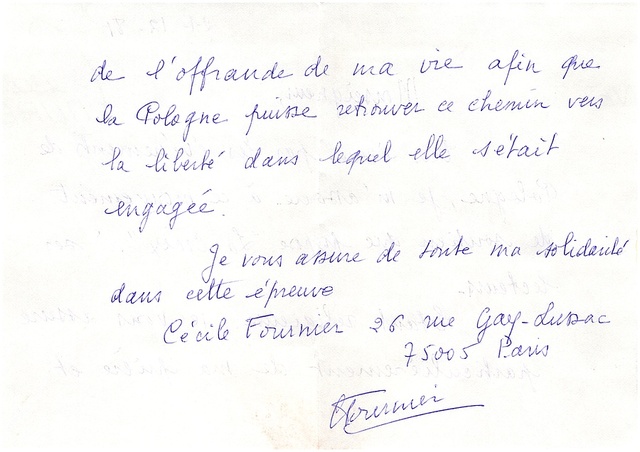 de l'offrande de ma vie afin que
la Pologne puisse retrouver ce chemin vers
la liberté dans lequel elle s'était
engagée.
Je vous assure de toute ma solidarité
dans cette épreuve
Cécile Fournier 26 rue Gay-Lussac
75005 Paris
Fournier